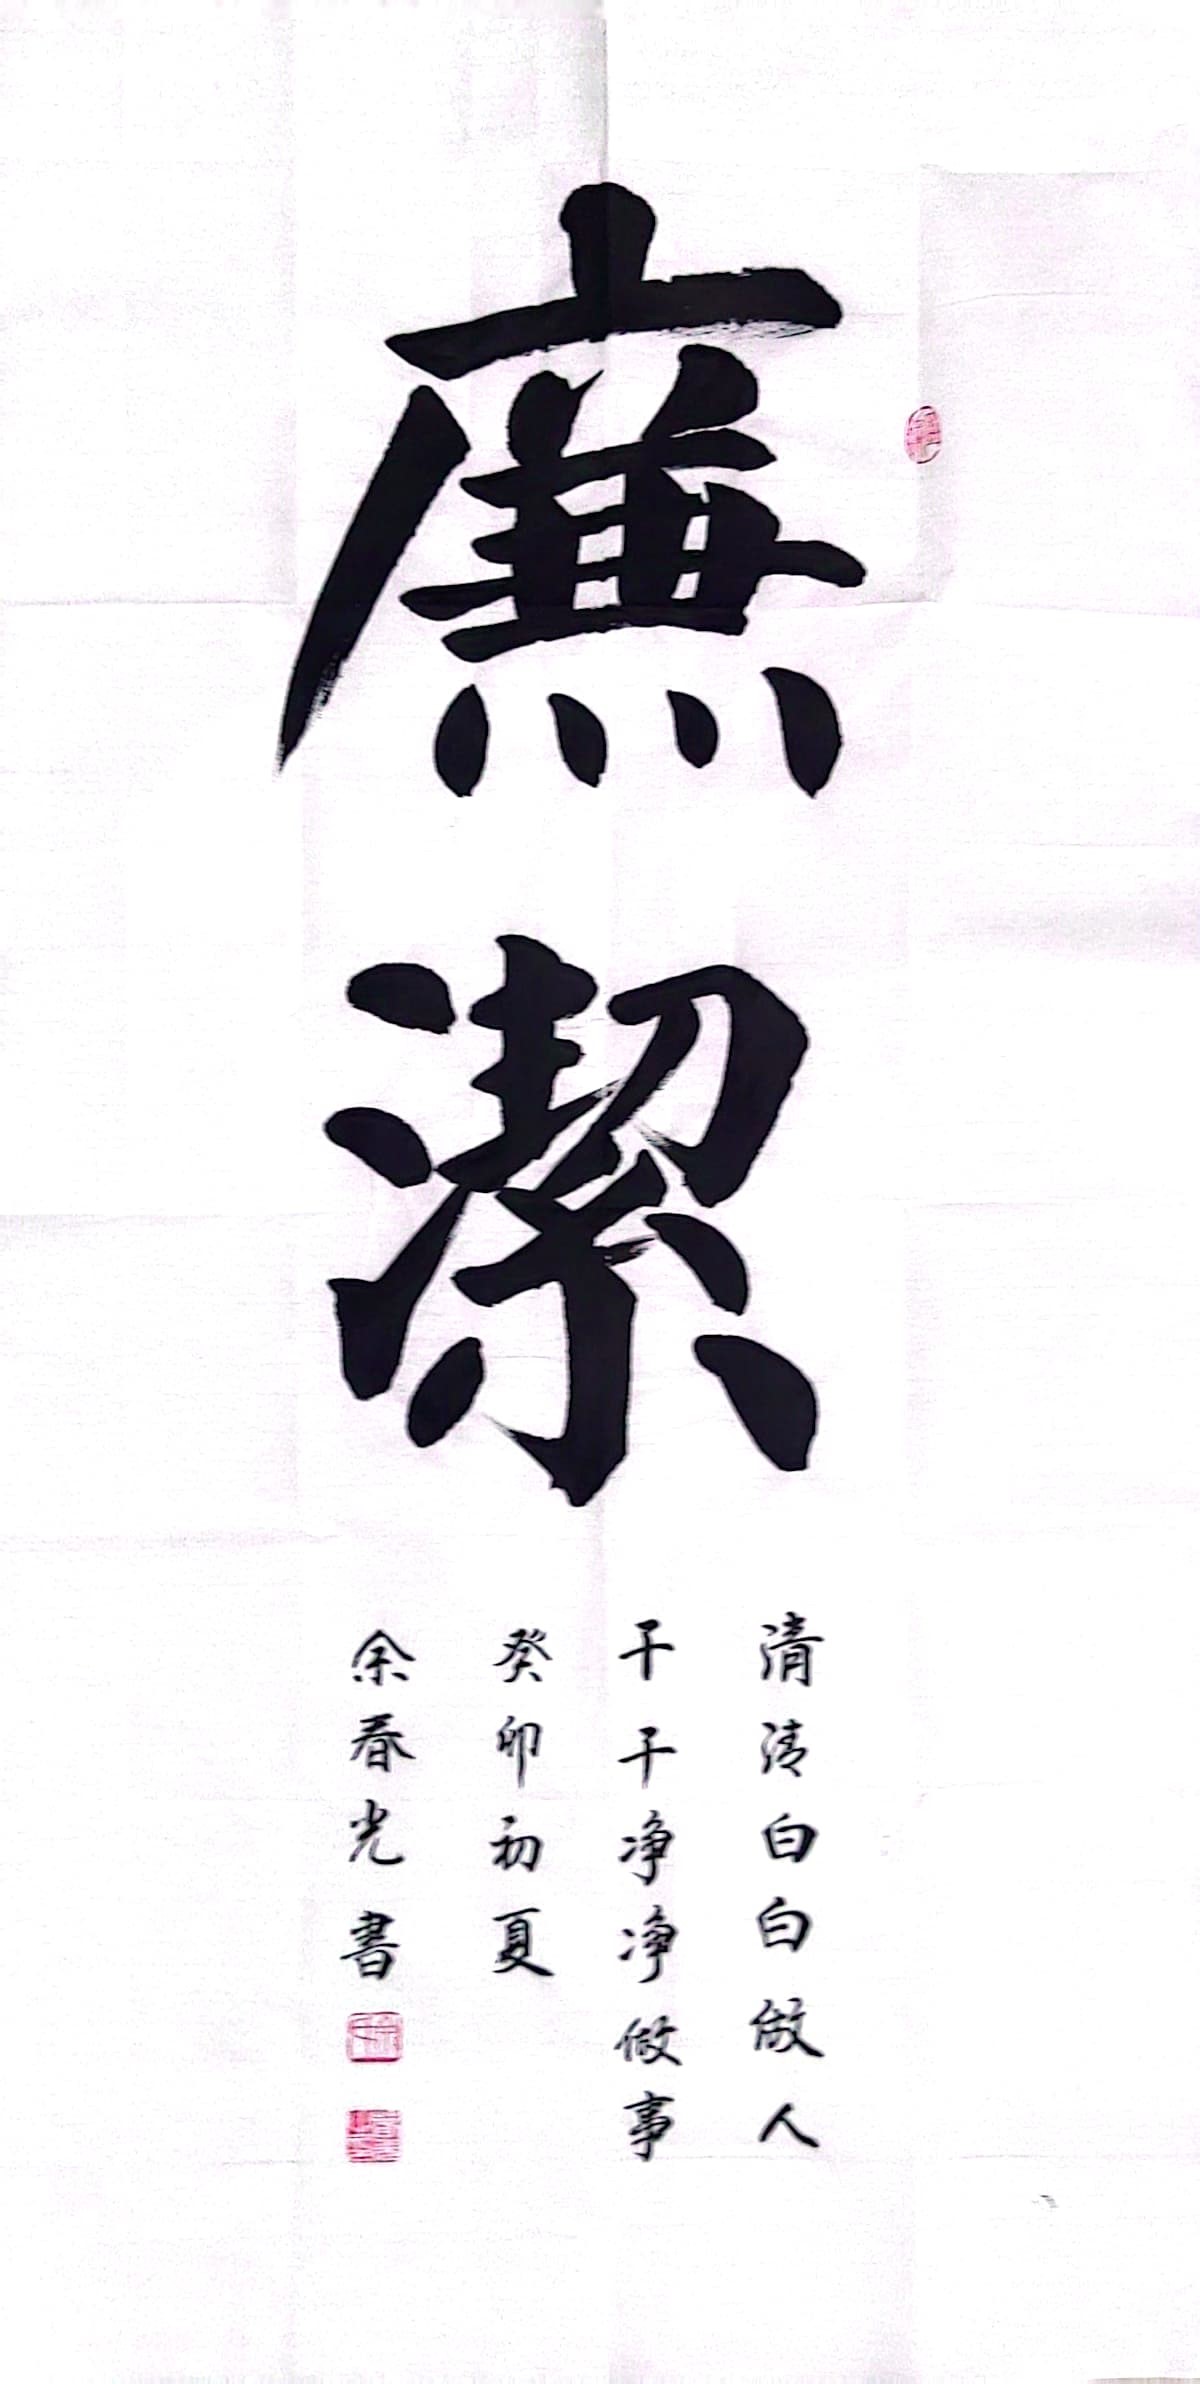 廉潔
清清白白做人
干干净净做事
癸卯初夏
余春光書